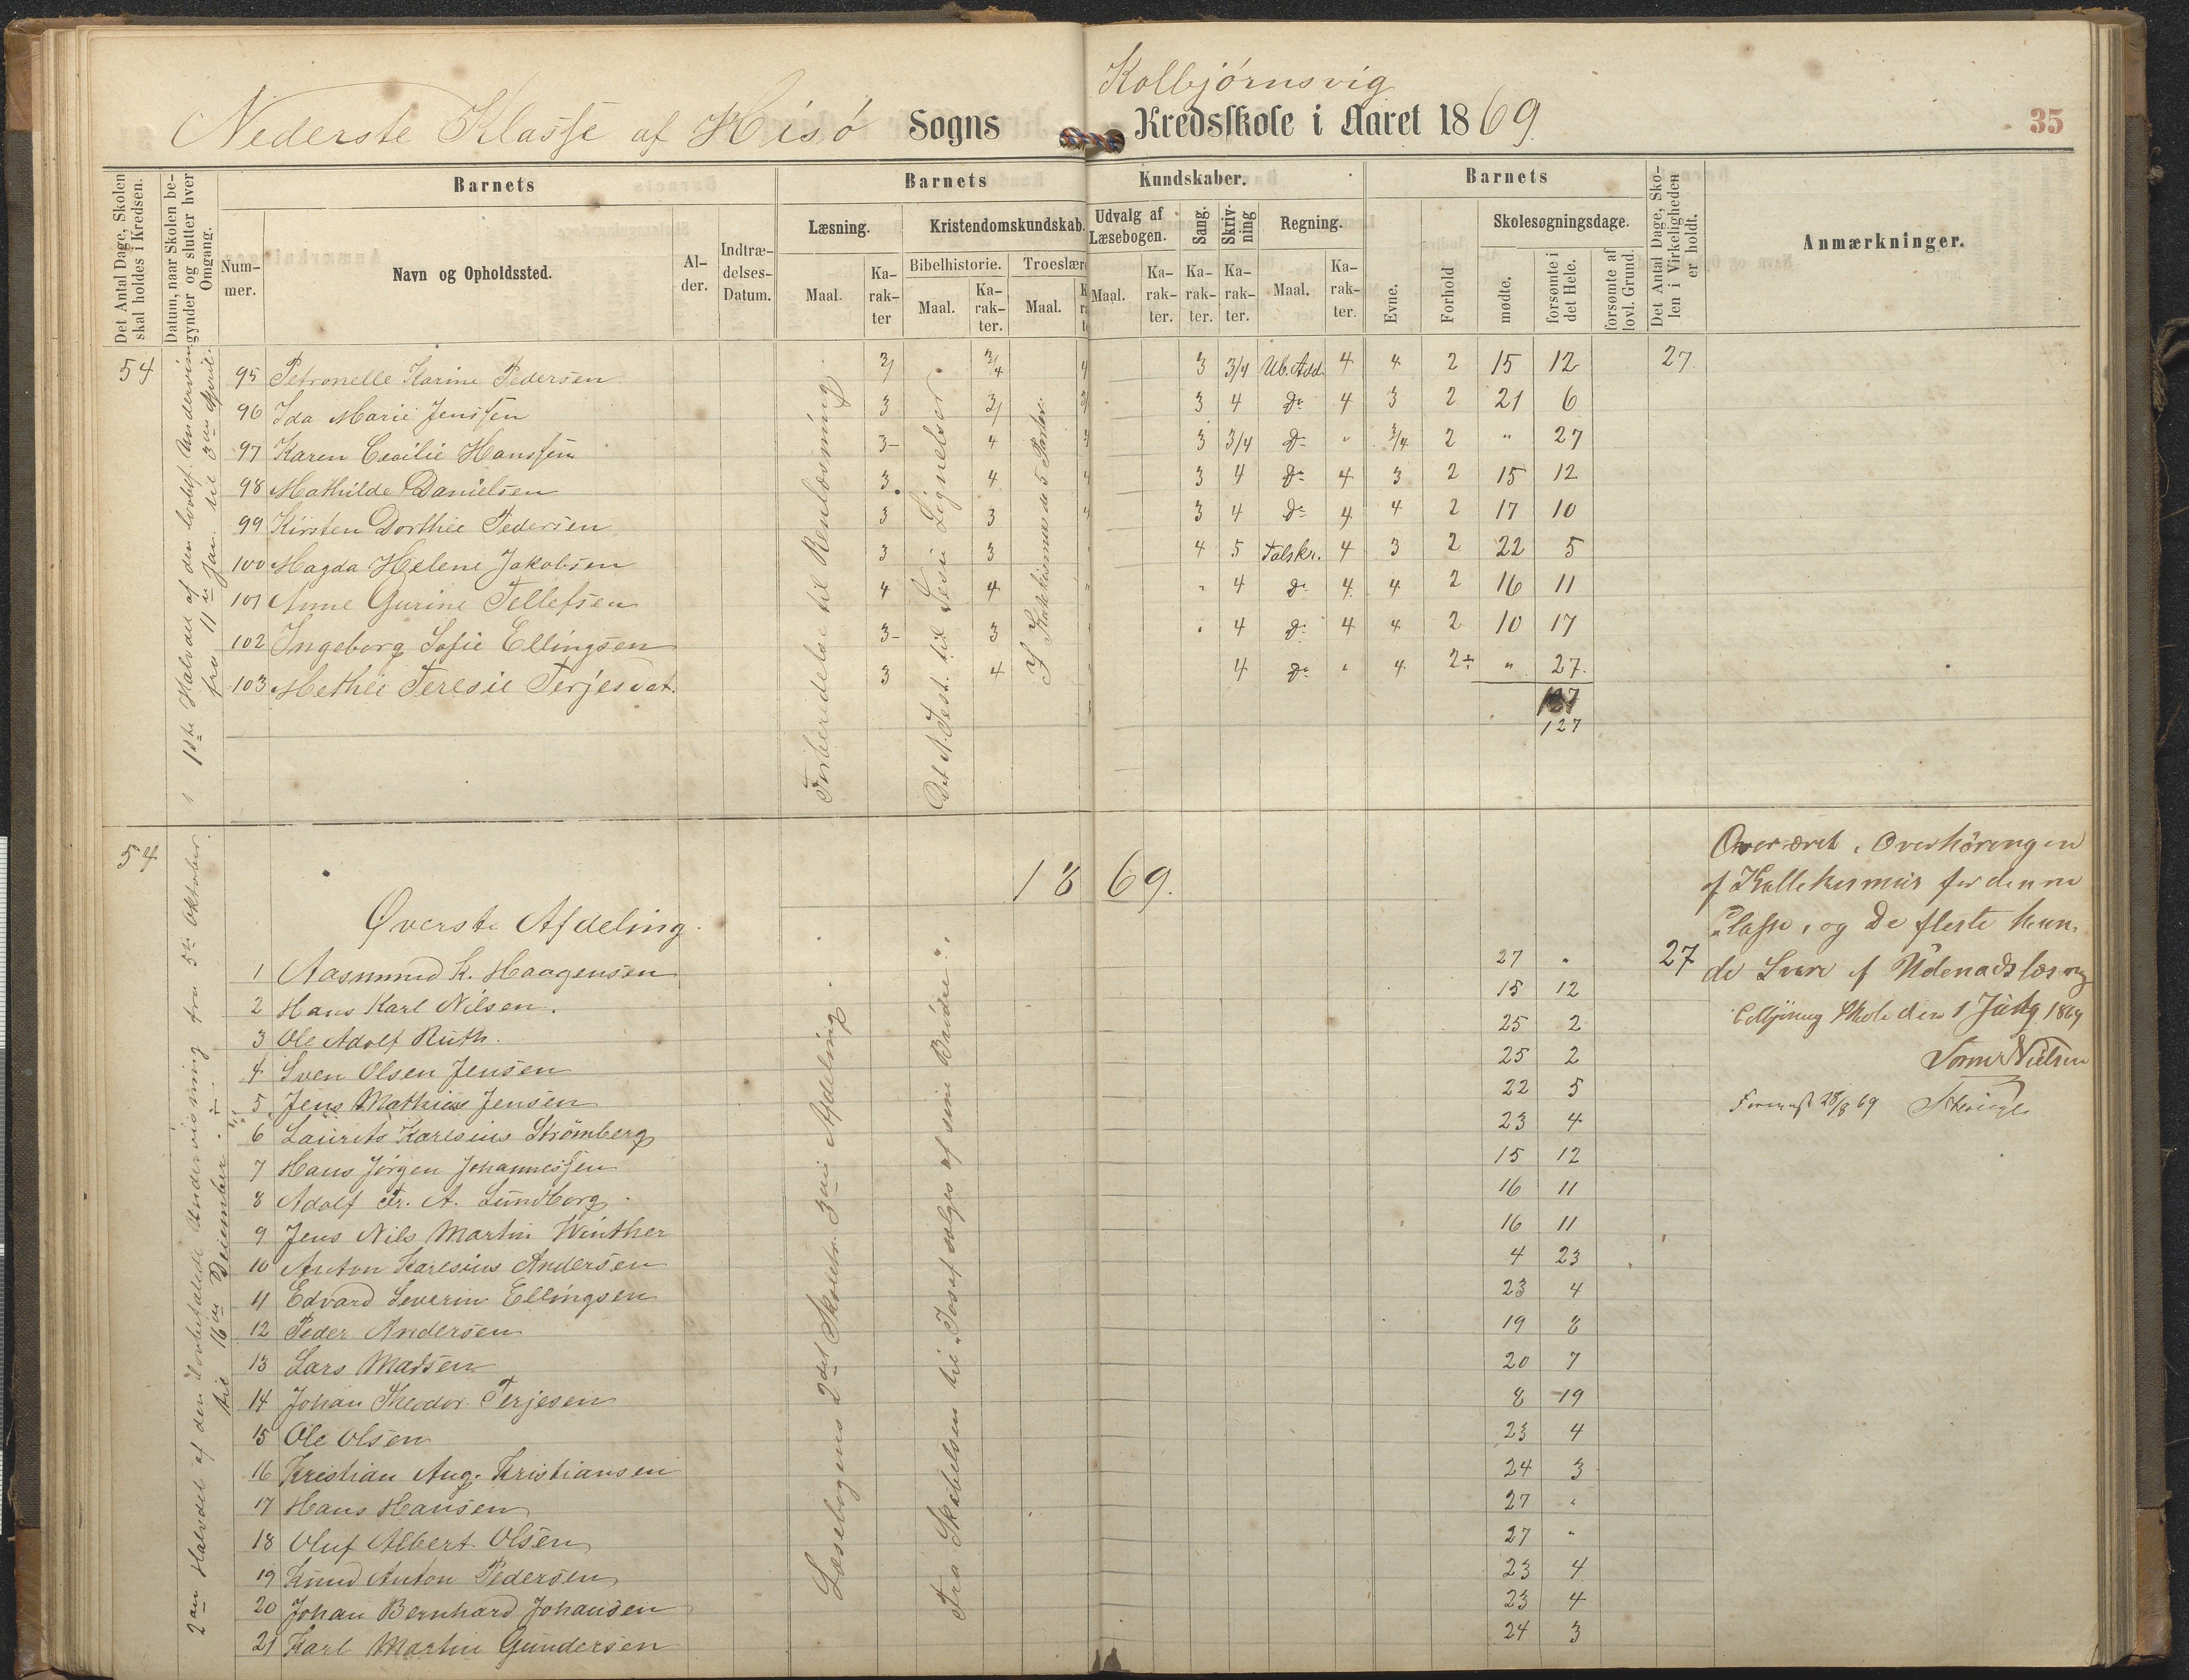 Kolbjørnsvig
Nederste Klasse af Hisø Sogns Kredsskole i Aaret 1869.
35
Det Antal Dage, Skolen skal holdes i Kredsen.
Datum, naar Skolen begynder og slutter hver Omgang.
Barnets
Barnets Kundskaber.
Barnets
Det Antal Dage, Skolen i Virkeligheden er holdt.
Anmærkninger.
Nummer.
Navn og Opholdssted.
Alder.
Indtrædelses-Datum.
Læsning.
Kristendomskundskab.
Udvalg af Læsebogen.
Sang.
Skrivning
Regning.
Evne.
Forhold
Skolesøgningsdage.
Bibelhistorie.
Troeslære
Maal.
Karakter
Maal.
Karakter.
Maal.
Maal.
Karakter.
Karakter.
Karakter.
Maal.
Karakter.
mødte.
forsømte i det Hele.
forsømte af lovl. Grund.
54
1ste Halvdel af den lovbef. Undervisning
fra 11te Jan. til 3die April.
Forberedelse til Renlæsning.
Det N. Test. til Jesu Lignelser.
I Katekismus de 5 Parter.
95 Petronelle Karine Pedersen 3/ 3/4 4 3 3/4 Ub. Add. 4 4 2 15 12 27
96 Ida Marie Jenssen 3 3/ 3/ 3 4 do 4 3 2 21 6
97 Karen Cecilie Hanssen 3- 4 3 3/4 do " 3/4 2 " 27
98 Mathilde Danielsen 3 4 4 3 4 do 4 3 2 15 12
99 Kirsten Dorthee Pedersen 3 3 4 3 4 do 4 4 2 17 10
100 Magda Helene Jakobsen 3 3 4 5 Talskr. 4 3 2 22 5
101 Anne Gurine Tellefsen 4 4 " 4 do 4 4 2 16 11
102 Ingeborg Sofie Ellingsen 3- 3 4 do 4 4 2 10 17
103 Methee Teresie Terjesdat. 3 4 4 do " 4 2÷ " 27.
127
54
2den Halvdel af den lovbefalede Undervisning fra 5te Oktober
til 16de December.
1869.
Øverste Afdeling.
Læsebogens 2det Skoletr. 3die Afdeling.
Fra Skabelsen til "Josef sælges af sine Brødre".
1 Aasmund K. Haagensen 27 " 27
2 Hans Karl Nilsen. 15 12
3 Ole Adolf Ruth. 25 2
4 Sven Olsen Jensen 25 2
5 Jens Mathias Jensen 22 5
6 Laurits Karesius Strømberg 23 4
7 Hans Jørgen Johannessen 15 12
8 Adolf Fr. A. Lundborg. 16 11
9 Jens Nils Martin Winther 16 11
10 Anton Karesius Andersen 4 23
11 Edvard Severin Ellingsen 23 4
12 Peder Andersen 19 8
13 Lars Madsen 20 7
14 Johan Theodor Terjesen 8 19
15 Ole Olsen 23 4
16 Kristian Aug. Kristiansen 24 3
17 Hans Hansen 27 "
18 Oluf Albert Olsen 27 "
19 Knud Anton Pedersen 23 4
20 Johan Bernhard Johansen 23 4
21 Karl Martin Gundersen 24 3
Overværet Overhøringen
af Kattekismus for denne
Classe, og de fleste kun
de Svare af Udenadslæsng
Skole den 1 1869
Nielsen
28/8 69